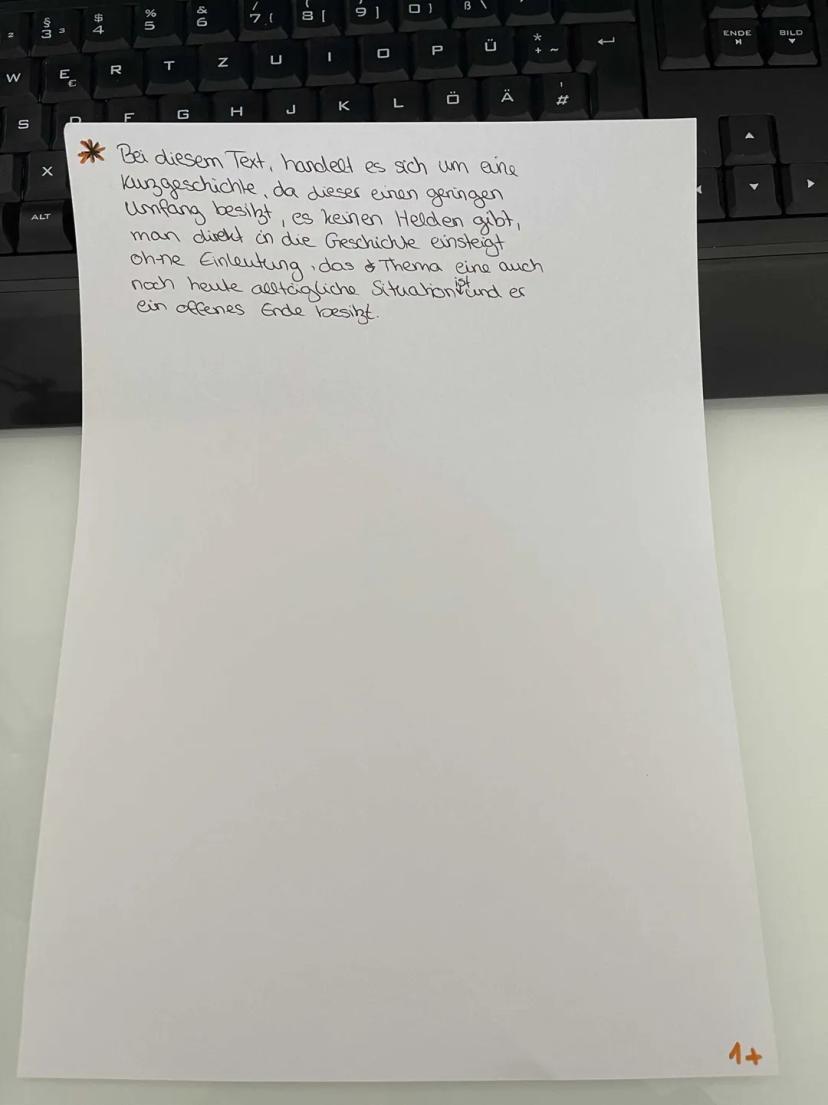 ² § 3 ³ $ 4 % 5 & 6 / 7 { ( 8 [ ) 9 ] 0 } ß \
W E € R T Z U I O P Ü * + ~ ENDE BILD
S D F G H J K L Ö Ä ' #
X
ALT
* Bei diesem Text, handelt es sich um eine
Kurzgeschichte, da dieser einen geringen
Umfang besitzt, es keinen Helden gibt,
man direkt in die Geschichte einsteigt
ohne Einleutung, das Thema eine auch
noch heute alltägliche Situation ist und er
ein offenes Ende besitzt.
1+